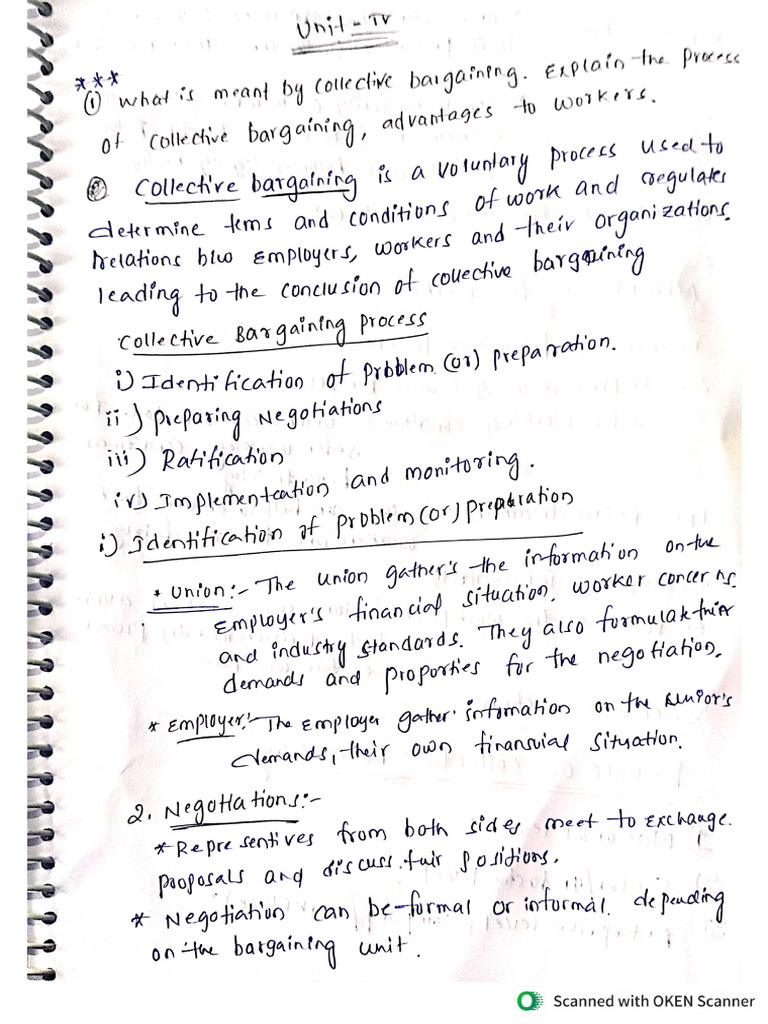 Unit-IV
***
① What is meant by collective bargaining. Explain the process
of collective bargaining, advantages to workers.
Collective bargaining is a voluntary process used to
determine tems and conditions of work and regulates
relations b/w Employers, workers and their organizations.
leading to the conclusion of collective bargaining
Collective Bargaining process
i) Identification of problem (or) preparation.
ii) preparing Negotiations
iii) Ratification
iv) Implementcation and monitoring.
i) Identification of problem (or) preparation
* Union:- The union gather's the information on the
Employer's financial situation. worker concerns.
and industry standards. They also formulate their
demands and proporties for the negotiation.
* Employer:- The Employer gather infomation on the
demands, their own finansuial situation.
2. Negotiations:-
* Represent­ives from both sides meet to Exchange.
proposals and discuss positions.
* Negotiation can be-formal or informal. depending
on the bargaining unit.
Scanned with OKEN Scanner